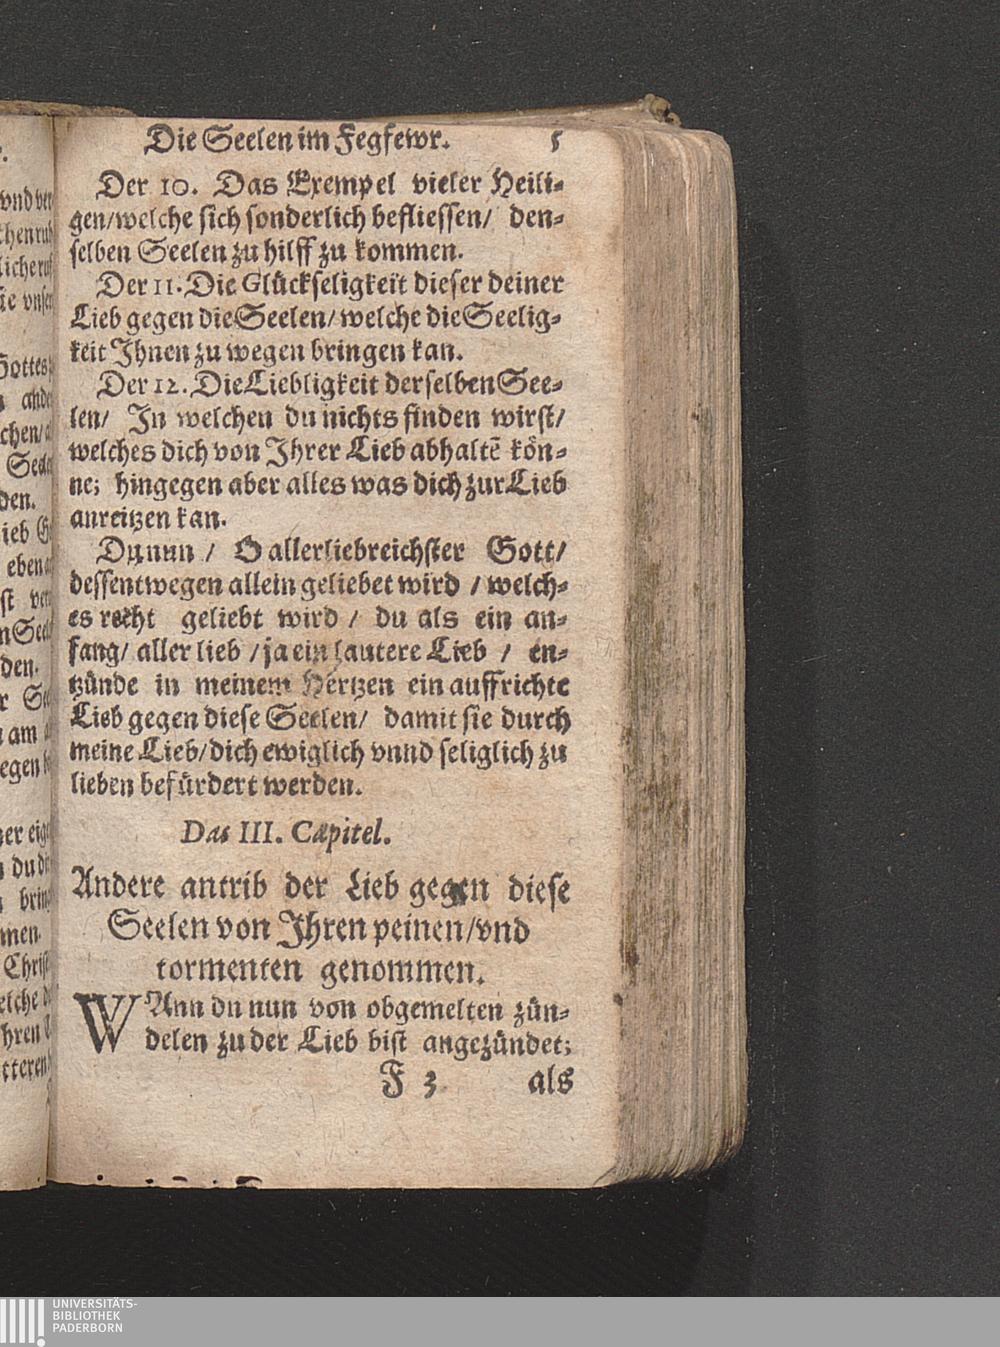 Die Seelen im Fegfewr. 5
Der 10. Das Exempel vieler Heili-
gen/welche sich sonderlich befliessen/ den-
selben Seelen zu hilff zu kommen.
Der 11. Die Glückseligkeit dieser deiner
Lieb gegen die Seelen/welche die Seelig-
keit Ihnen zu wegen bringen kan.
Der 12. Die Liebligkeit derselben See-
len/ In welchen du nichts finden wirst/
welches dich von Ihrer Lieb abhaltē kön-
ne; hingegen aber alles was dich zur Lieb
anreitzen kan.
Du nun / O allerliebreichster Gott/
dessentwegen allein geliebet wird / welch-
es recht geliebt wird / du als ein an-
fang/ aller lieb / ja ein lautere Lieb / en-
tzünde in meinem Hertzen ein auffrichte
Lieb gegen diese Seelen/ damit sie durch
meine Lieb/dich ewiglich vnnd seliglich zu
lieben befürdert werden.
Das III. Capitel.
Andere antrib der Lieb gegen diese
Seelen von Ihren peinen/vnd
tormenten genommen.
WAnn du nun von obgemelten zün-
delen zu der Lieb bist angezündet;
F 3 als
UNIVERSITÄTS-
BIBLIOTHEK
PADERBORN